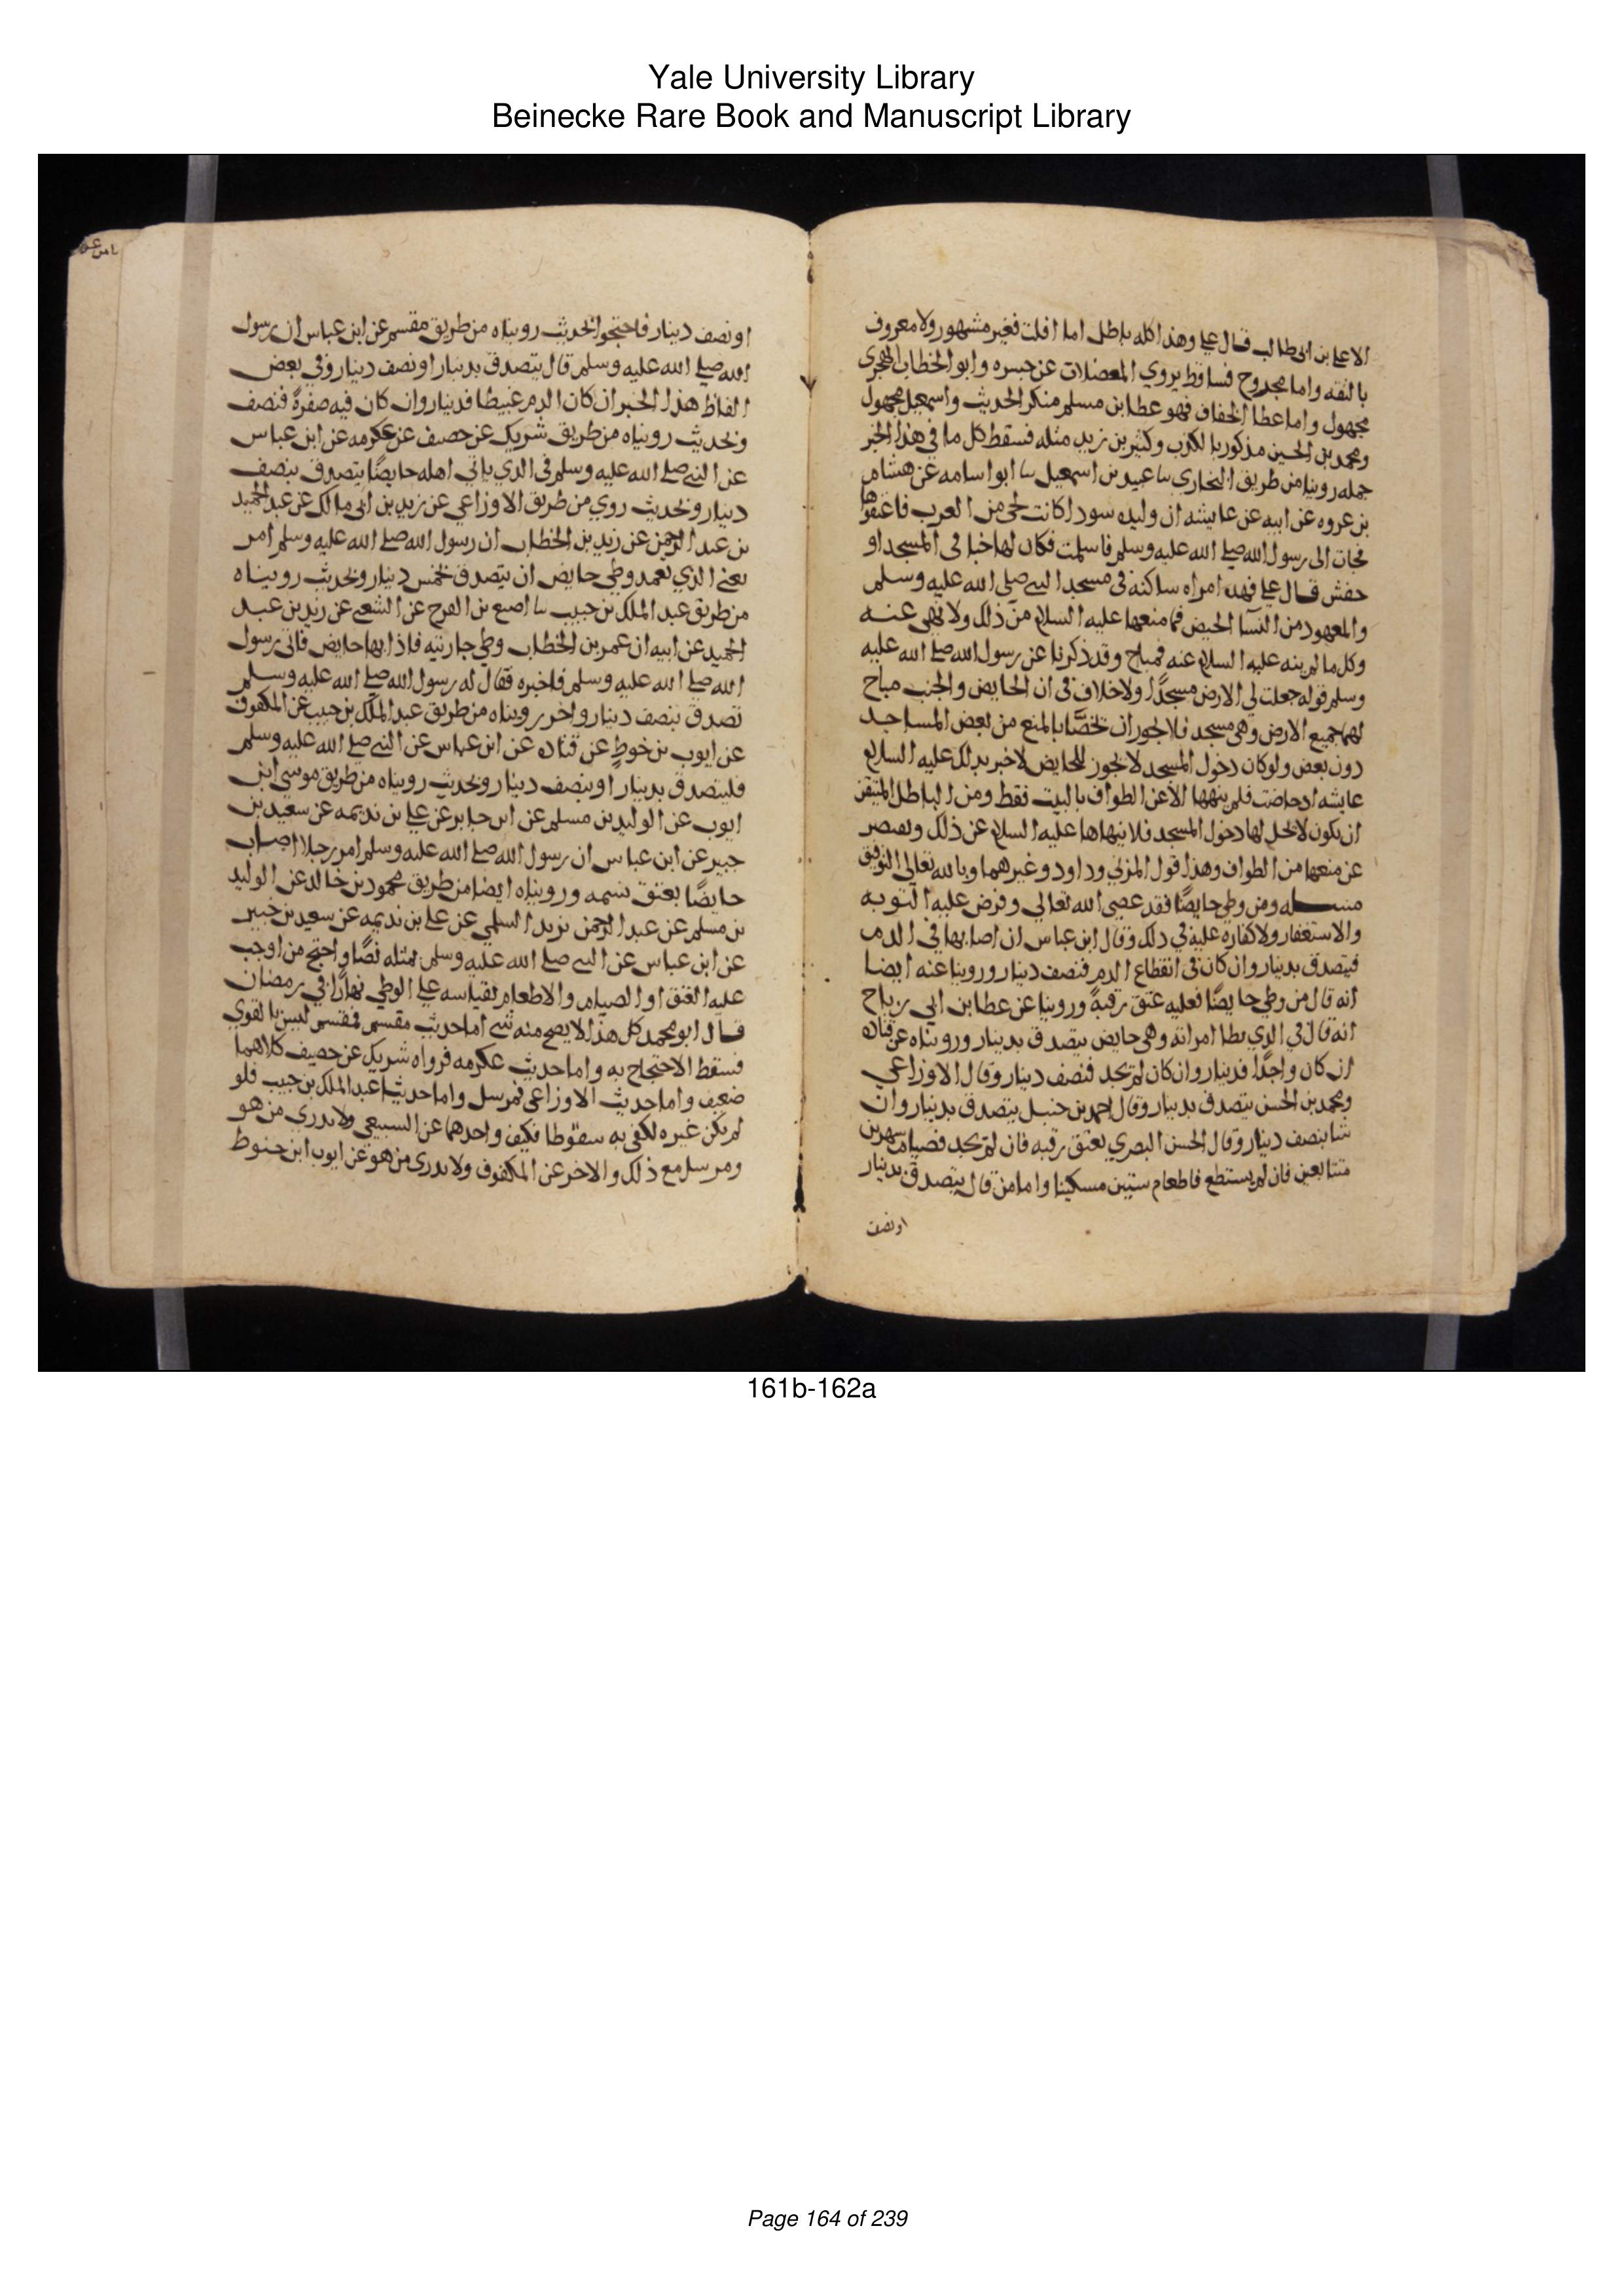 Yale University Library
Beinecke Rare Book and Manuscript Library
الا علي بن ابي طالب قال علي وهذا كله باطل اما افلت فغير مشهور ولا معروف
بالثقه واما مجدوح فساقط يروي المعضلات عن جسره وابو الخطاب الهجري
مجهول واما عطا الخفاف فهو عطا بن مسلم منكر الحديث واسمعيل مجهول
ومحمد بن الحسن مذكور بالكذب وكثير بن زيد مثله فسقط كل ما في هذا الخبر
جمله روينا من طريق البخاري سا عبيد بن اسمعيل سا ابو اسامه عن هشام
بن عروه عن ابيه عن عايشه ان وليده سودا كانت لحي من العرب فاعتقوها
فجات الى رسول الله صلي الله عليه وسلم فاسلمت فكان لها خبا في المسجد او
حفش قال علي فهذه امراه ساكنه في مسجد النبي صلي الله عليه وسلم
والمعهود من النسا الحيض فما منعها عليه السلام من ذلك ولا نهى عنه
وكل ما لم ينه عليه السلام عنه فمباح وقد ذكرنا عن رسول الله صلي الله عليه
وسلم قوله جعلت لي الارض مسجدًا ولا خلاف في ان الحايض والجنب مباح
لهما جميع الارض وهي مسجد فلا يجوز ان يخصّا بالمنع من بعض المساجد
دون بعض ولو كان دخول المسجد لا يجوز للحايض لاخبر بذلك عليه السلام
عايشه اذ حاضت فلم ينهها الا عن الطواف بالبيت فقط ومن الباطل المتيقن
ان يكون لا يحل لها دخول المسجد فلا ينهاها عليه السلام عن ذلك ويقتصر
عن منعها من الطواف وهذا قول المزني وداود وغيرهما وبالله تعالي التوفيق
مسله ومن وطي حايضًا فقد عصي الله تعالي وفرض عليه التوبه
والاستغفار ولا كفاره عليه في ذلك وقال ابن عباس ان اصابها في الدم
فيتصدق بدينار وان كان في انقطاع الدم فنصف دينار وروينا عنه ايضا
انه قال من وطي حايضًا فعليه عتق رقبةً وروينا عن عطا بن ابي رباح
انه قال في الذي يطا امراته وهي حايض يتصدق بدينار ورويناه عن قتاده
ان كان واجدًا فدينار وان كان لم يجد فنصف دينار وقال الاوزاعي
ومحمد بن الحسن يتصدق بدينار وقال احمد بن حنبل يتصدق بدينار وان
شا بنصف دينار وقال الحسن البصري يعتق رقبه فان لم يجد فصيام شهرين
متتابعين فان لم يستطع فاطعام ستين مسكينا واما من قال يتصدق بدينار
او نصف
او نصف دينار فاحتجوا بحديث رويناه من طريق مقسم عن ابن عباس ان رسول
الله صلي الله عليه وسلم قال يتصدق بدينار او نصف دينار وفي بعض
الفاظ هذا الخبر ان كان الدم عبيطا فدينار وان كان فيه صفرةً فنصف
وبحديث رويناه من طريق شريك عن خصيف عن عكرمه عن ابن عباس
عن النبي صلي الله عليه وسلم في الذي ياتي اهله حايضًا يتصدق بنصف
دينار وبحديث روي من طريق الاوزاعي عن يزيد بن ابي مالك عن عبد الحميد
بن عبد الرحمن عن زيد بن الخطاب ان رسول الله صلي الله عليه وسلم امر
يعني الذي تعمد وطي حايض ان يتصدق بخمس دينار وبحديث رويناه
من طريق عبد الملك بن حبيب سا اصبغ بن الفرج عن الشعبي عن زيد بن عبد
الحميد عن ابيه ان عمر بن الخطاب وطي جاريته فاذا بها حايض فاتى رسول
الله صلي الله عليه وسلم فاخبره فقال له رسول الله صلي الله عليه وسلم
تصدق بنصف دينار واخر رويناه من طريق عبد الملك بن حبيب عن المكفوف
عن ايوب بن خوط عن قتاده عن ابن عباس عن النبي صلي الله عليه وسلم
فليتصدق بدينار او بنصف دينار وبحديث رويناه من طريق موسى ابن
ايوب عن الوليد بن مسلم عن ابن جابر عن علي بن نديمه عن سعيد بن
جبير عن ابن عباس ان رسول الله صلي الله عليه وسلم امر رجلا اصاب
حايضًا بعتق نسمه ورويناه ايضا من طريق محمود بن خالد عن الوليد
بن مسلم عن عبد الرحمن يزيد السلمي عن علي بن نديمه عن سعيد بن جبير
عن ابن عباس عن النبي صلي الله عليه وسلم بمثله نصًا واحتج من اوجب
عليه العتق او الصيام والاطعام بقياسه علي الوطي نهارًا في رمضان
قال ابو محمد كل هذا لا يصح منه شي اما حديث مقسم فمقسم ليس بالقوي
فسقط الاحتجاج به واما حديث عكرمه فرواه شريك عن خصيف كلاهما
ضعيف واما حديث الاوزاعي فمرسل واما حديثا عبد الملك بن حبيب فلو
لم يكن غيره لكفي به سقوطا فكيف واحدهما عن السبيعي ولا يدرى من هو
ومرسل مع ذلك والاخر عن المكفوف ولا يدرى من هو عن ايوب ابن خوط
161b-162a
Page 164 of 239